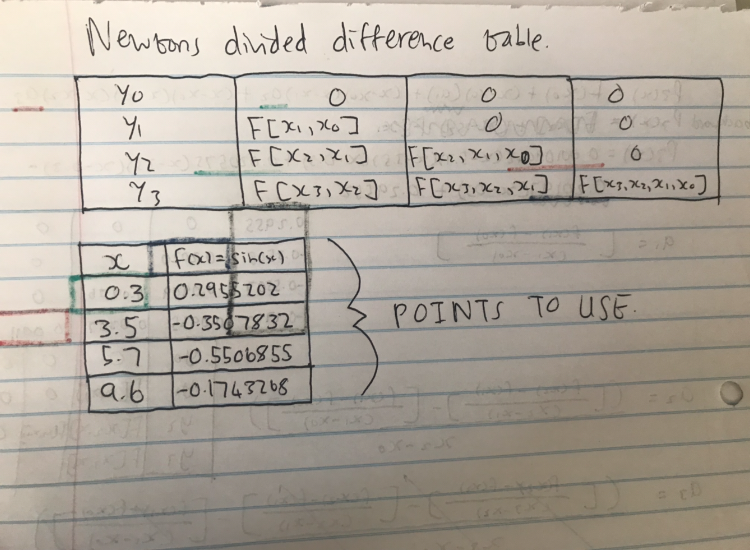 Newtons divided difference table.
y0 0 0 0
y1 F[x1,x0] 0 0
y2 F[x2,x1] F[x2,x1,x0] 0
y3 F[x3,x2] F[x3,x2,x1] F[x3,x2,x1,x0]
x f(x)=sin(x)
0.3 0.2955202
3.5 -0.3507832
5.7 -0.5506855
9.6 -0.1743268
POINTS TO USE.